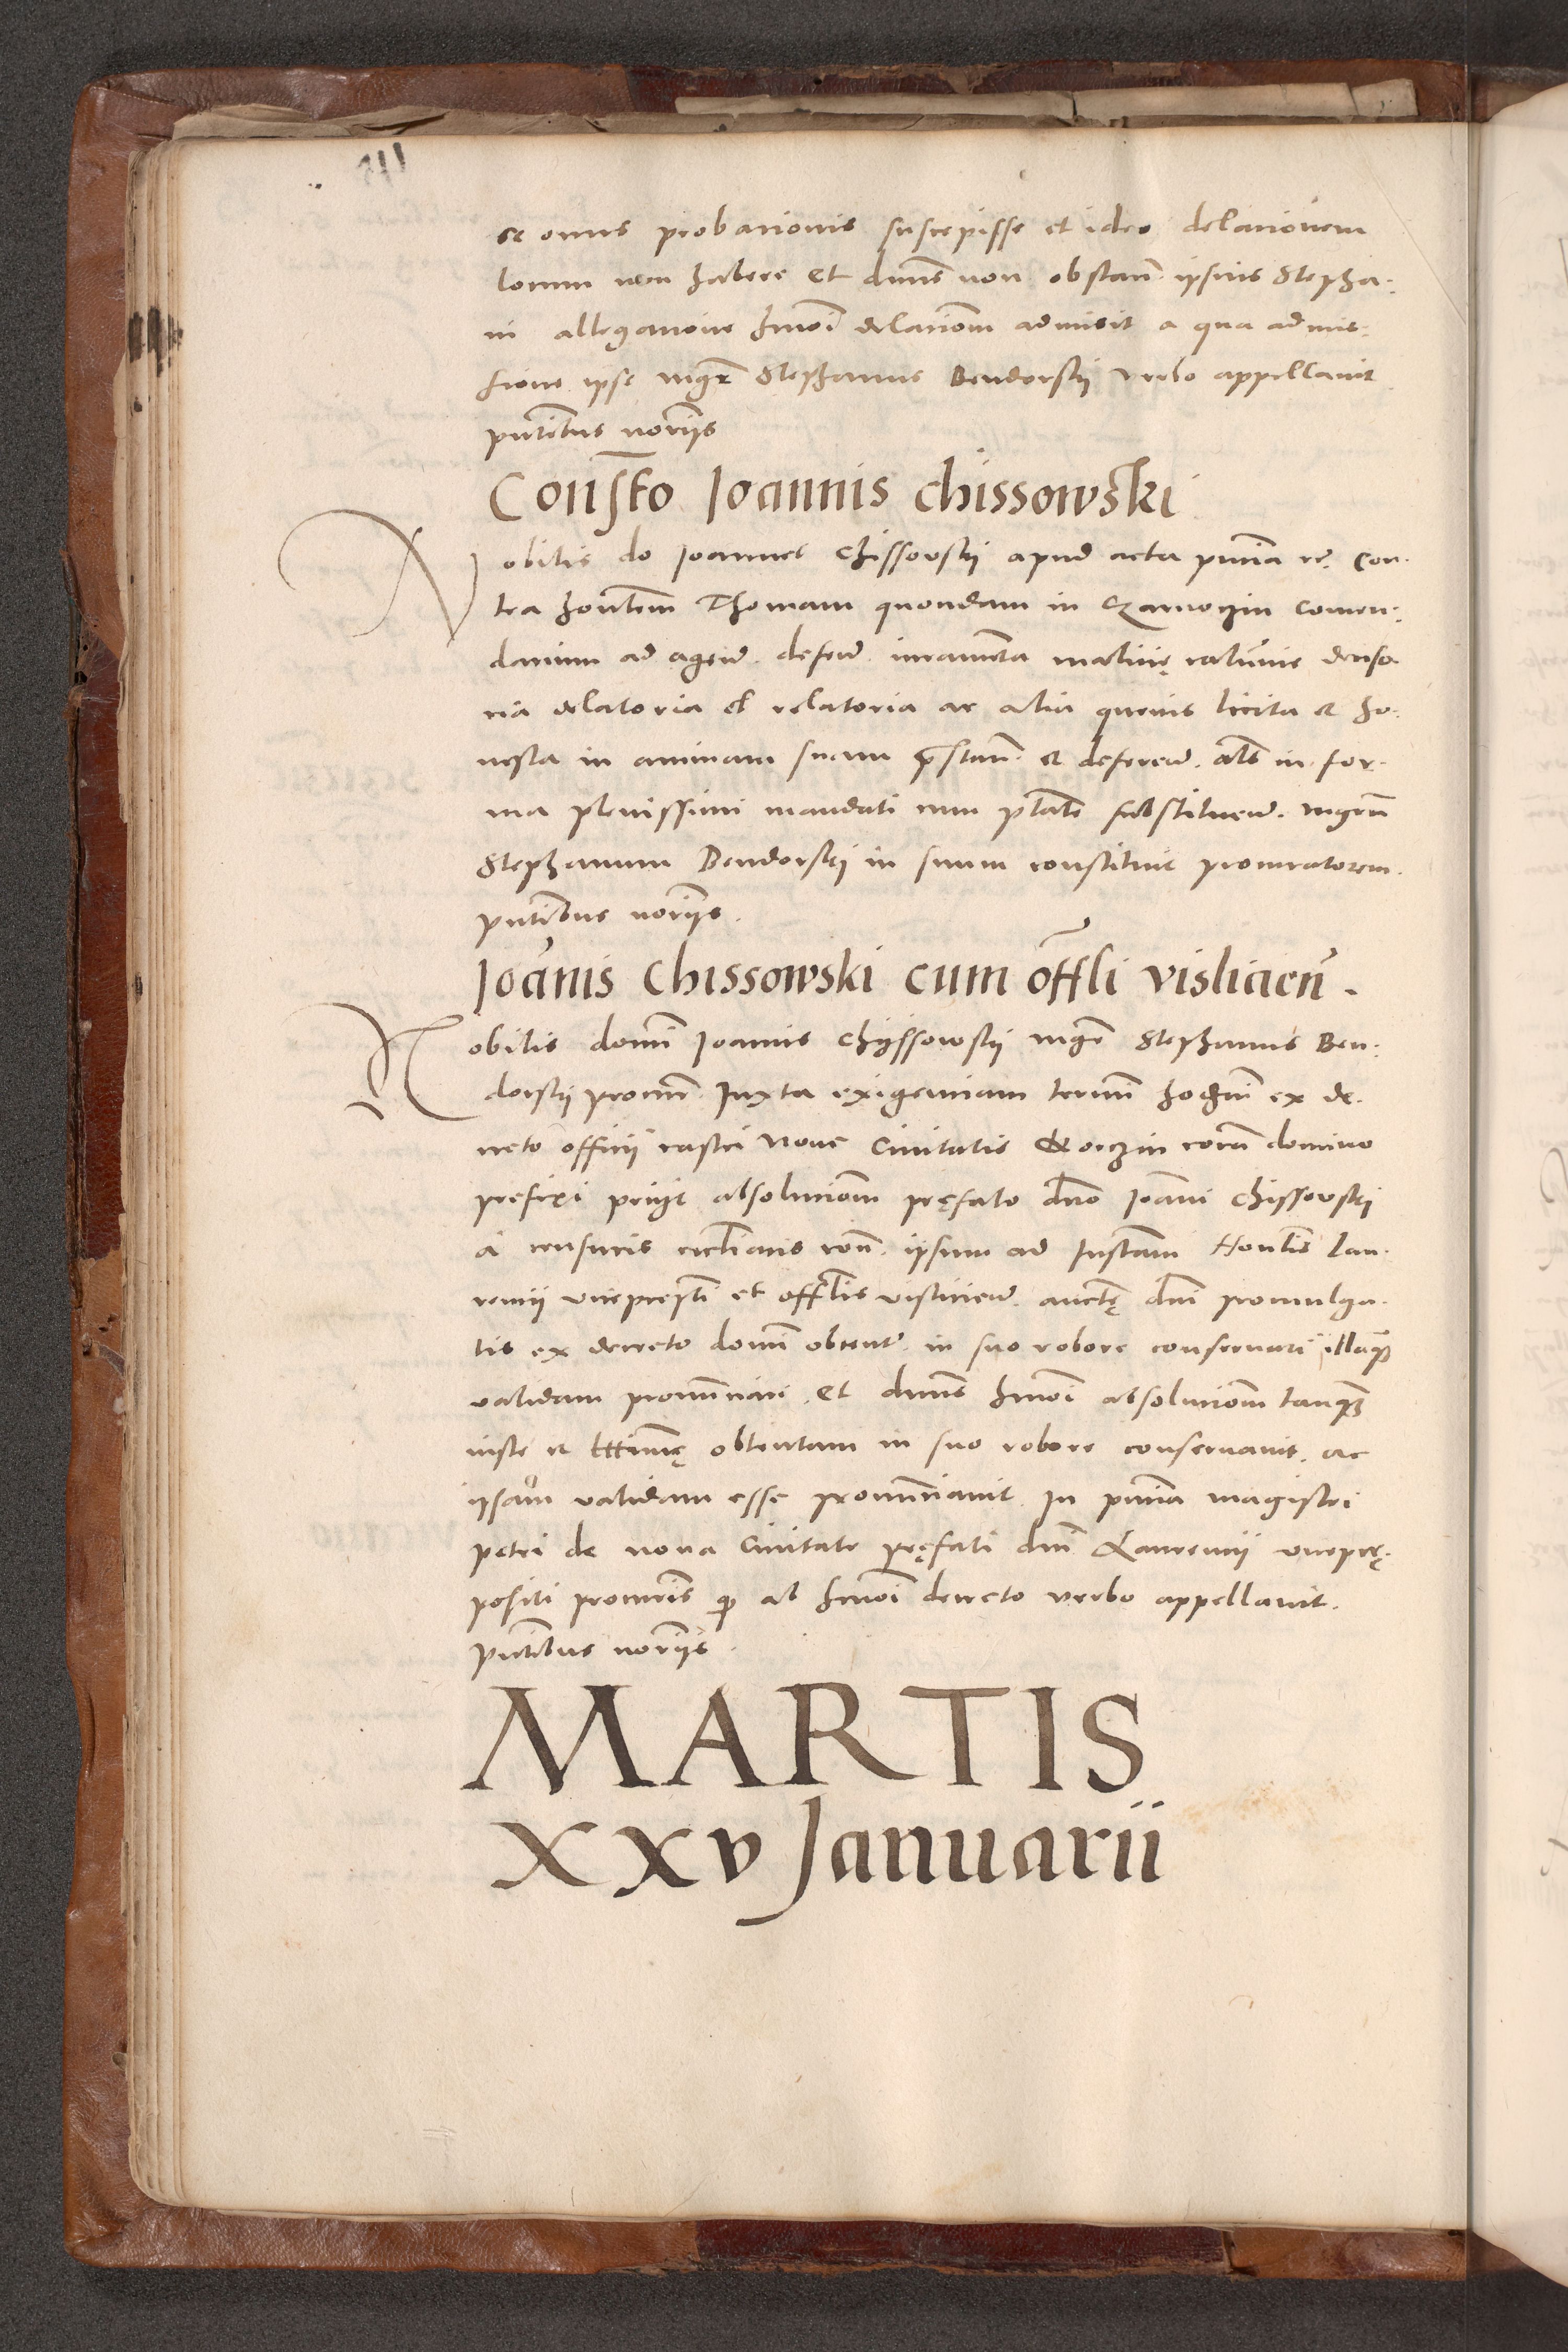 se onus probacionis suscepisse et ideo delacionem
locum non habere Et dnus non obstan. ipsius Stepha-
ni allegacione hmoi delacionem admisit a qua admis-
sione ipse mgr Stephanus Bendorskij verbo appellavit
pntibus notriis
Consto Ioannis Chissowski
Nobilis do Ioannes Chissovskij apud acta pncia rc. con-
tra hontem Thomam quondam in Czarnoczin comen-
darium ad agend. defend. iuramenta malicie calumnie deciso-
ria delatoria et relatoria ac alia quevis licita et ho-
nesta in animam suam prestan. et deferend. als in for-
ma plenissimi mandati cum ptate substituend. mgrum
Stephanum Bendorskij in suum constituit procuratorem.
pntibus notriis.
Ioanis Chissowski cum offli visliaen.
Nobilis domi Ioannis Chyssowskij mgr Stephanus Ben-
dorskij procur. Iuxta exigenciam termi hodierni ex de-
creto officii castri Nove Civitatis Korczin coram domino
prefixi peciit absolucionem prefato dno Ioanni Chissovskij
a censuris ecclasticis con. ipsum ad Instam Hontis Lau-
rencii viceprepti et offlis visliciens. aucte dni promulga-
tis ex decreto domi obtent. in suo robore conservari illamque
validam pronunciari. Et dnus hmoi absolucionem tanquam
iuste et lttime obtentam in suo robore conservavit. ac
ipsam validam esse pronunciavit. In pncia magistri
petri de nova Civitate prefati dni Laurencii vicepre-
positi procuris qui ab hmoi decreto verbo appellavit.
pntibus notriis.
MARTIS
xxv Januarii